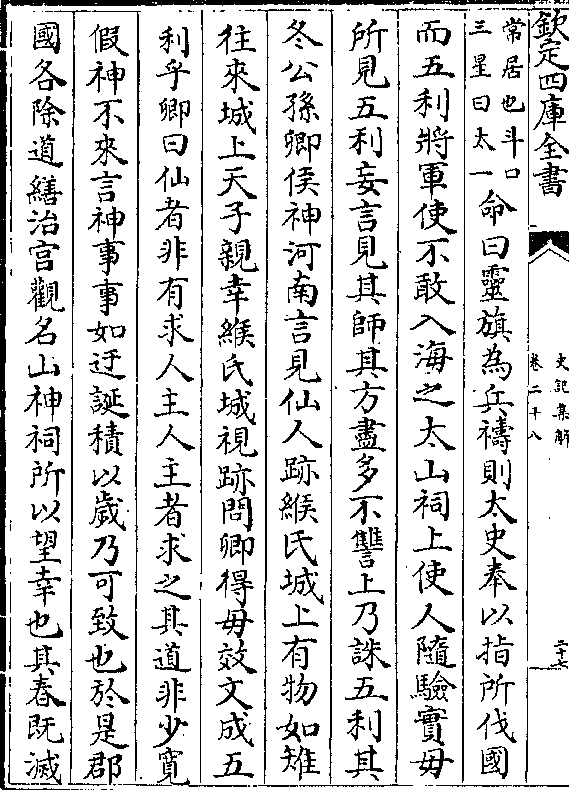 欽定四庫全書
史記集解
卷二十八
二十七
常居也斗口
三星曰太一
命曰靈旗為兵禱則太史奉以指所伐國
而五利將軍使不敢入海之太山祠上使人隨驗實毋
所見五利妄言見其師其方盡多不讐上乃誅五利其
冬公孫卿侯神河南言見仙人跡緱氏城上有物如雉
往來城上天子親幸緱氏城視跡問卿得毋效文成五
利乎卿曰仙者非有求人主人主者求之其道非少寛
假神不來言神事事如迂誕積以歲乃可致也於是郡
國各除道繕治宫觀名山神祠所以望幸也其春既滅